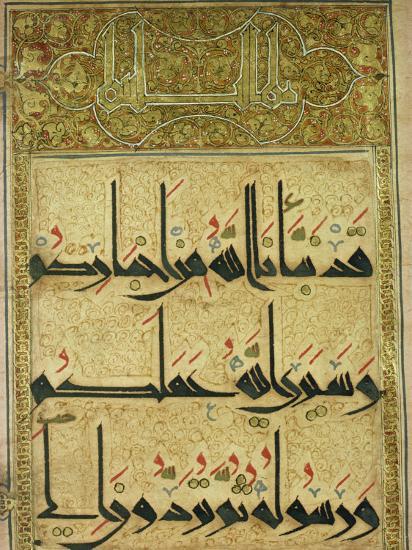 قَد نَبَّأَنَا اللَّهُ مِن أَخبَارِكُم
وَسَيَرَى اللَّهُ عَمَلَكُم
وَرَسُولُهُ ثُمَّ تُرَدُّونَ إِلَى